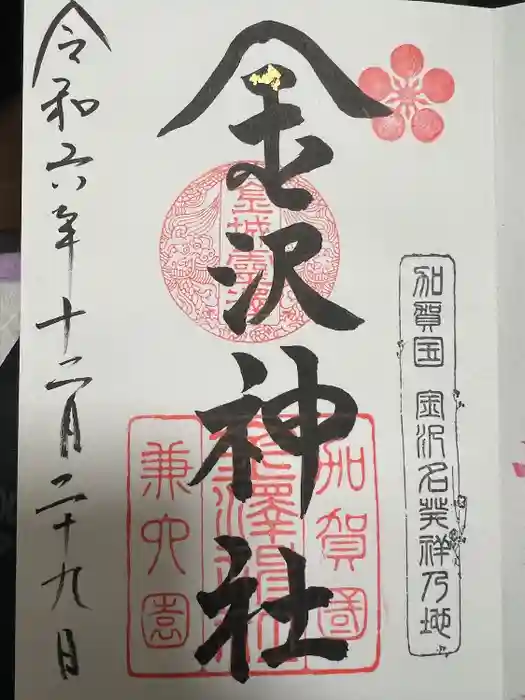 加賀国 金沢名発祥乃地
金沢神社
金城霊澤
加賀国
金澤神社
兼六園
令和六年十二月二十九日